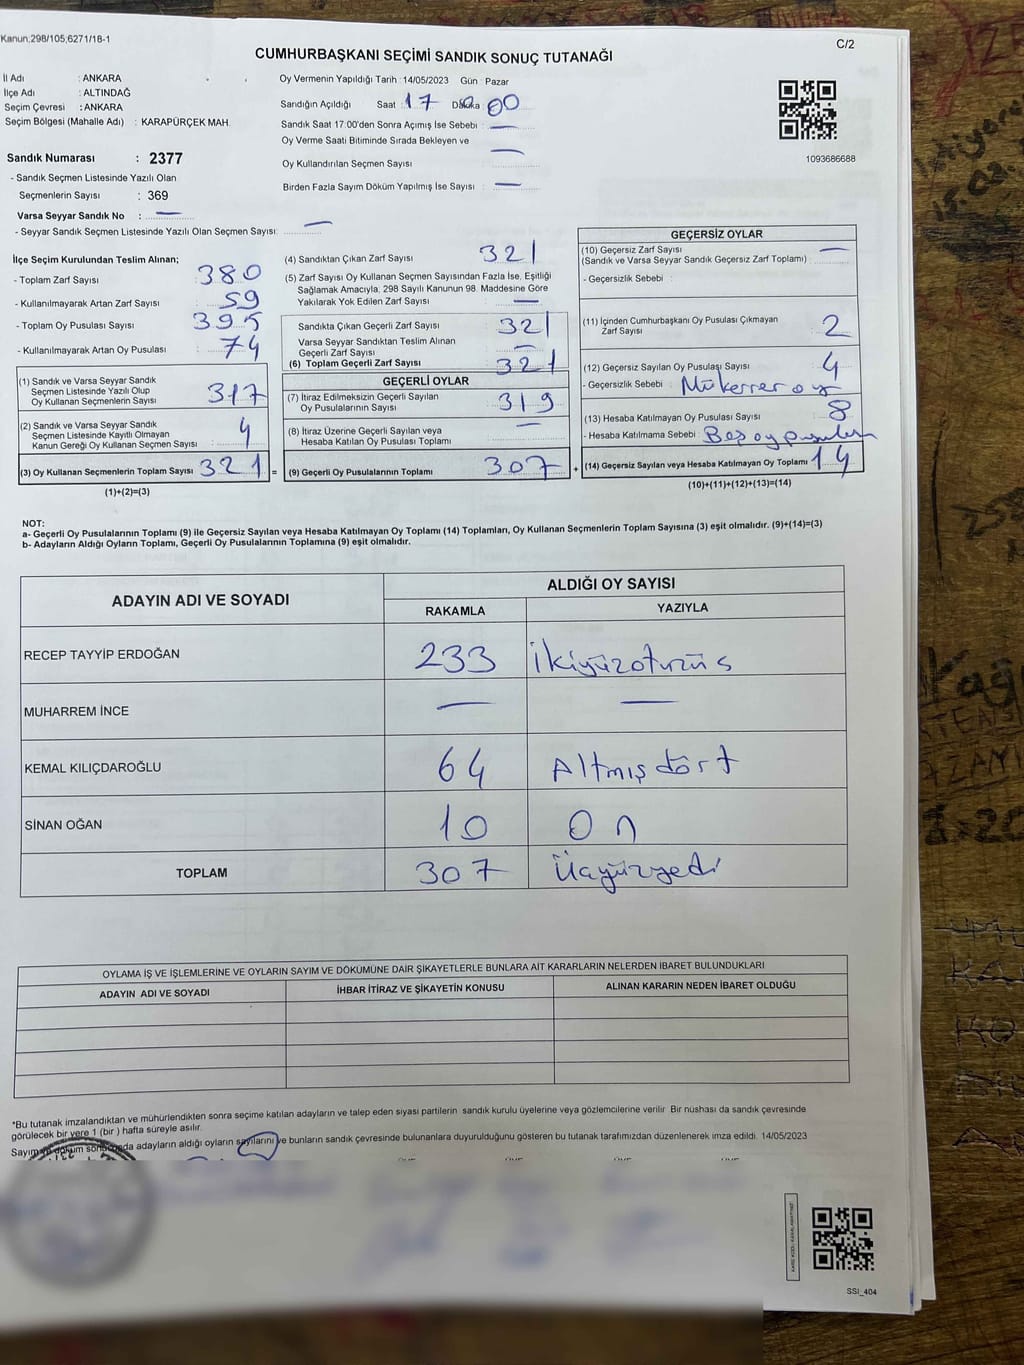 Kanun;298/105,6271/18-1
C/2
CUMHURBAŞKANI SEÇİMİ SANDIK SONUÇ TUTANAĞI
İl Adı : ANKARA
İlçe Adı : ALTINDAĞ
Seçim Çevresi : ANKARA
Seçim Bölgesi (Mahalle Adı) : KARAPÜRÇEK MAH.
Sandık Numarası : 2377
- Sandık Seçmen Listesinde Yazılı Olan
Seçmenlerin Sayısı : 369
Varsa Seyyar Sandık No : —
- Seyyar Sandık Seçmen Listesinde Yazılı Olan Seçmen Sayısı: —
Oy Vermenin Yapıldığı Tarih : 14/05/2023 Gün : Pazar
Sandığın Açıldığı Saat : 17 Dakika 00
Sandık Saat 17:00'den Sonra Açımış İse Sebebi : —
Oy Verme Saati Bitiminde Sırada Bekleyen ve
Oy Kullandırılan Seçmen Sayısı —
Birden Fazla Sayım Döküm Yapılmış İse Sayısı : —
1093686688
İlçe Seçim Kurulundan Teslim Alınan;
- Toplam Zarf Sayısı : 380
- Kullanılmayarak Artan Zarf Sayısı : 59
- Toplam Oy Pusulası Sayısı : 395
- Kullanılmayarak Artan Oy Pusulası : 74
(1) Sandık ve Varsa Seyyar Sandık
Seçmen Listesinde Yazılı Olup
Oy Kullanan Seçmenlerin Sayısı : 317
(2) Sandık ve Varsa Seyyar Sandık
Seçmen Listesinde Kayıtlı Olmayan
Kanun Gereği Oy Kullanan Seçmen Sayısı : 4
(3) Oy Kullanan Seçmenlerin Toplam Sayısı : 321 =
(1)+(2)=(3)
(4) Sandıktan Çıkan Zarf Sayısı : 321
(5) Zarf Sayısı Oy Kullanan Seçmen Sayısından Fazla İse, Eşitliği
Sağlamak Amacıyla, 298 Sayılı Kanunun 98. Maddesine Göre
Yakılarak Yok Edilen Zarf Sayısı : —
Sandıkta Çıkan Geçerli Zarf Sayısı : 321
Varsa Seyyar Sandıktan Teslim Alınan
Geçerli Zarf Sayısı : —
(6) Toplam Geçerli Zarf Sayısı : 321
GEÇERLİ OYLAR
(7) İtiraz Edilmeksizin Geçerli Sayılan
Oy Pusulalarının Sayısı : 319
(8) İtiraz Üzerine Geçerli Sayılan veya
Hesaba Katılan Oy Pusulası Toplamı : —
(9) Geçerli Oy Pusulalarının Toplamı : 307 +
GEÇERSİZ OYLAR
(10) Geçersiz Zarf Sayısı —
(Sandık ve Varsa Seyyar Sandık Geçersiz Zarf Toplamı) :
- Geçersizlik Sebebi :
(11) İçinden Cumhurbaşkanı Oy Pusulası Çıkmayan
Zarf Sayısı : 2
(12) Geçersiz Sayılan Oy Pusulası Sayısı : 4
- Geçersizlik Sebebi : Mükerrer oy
(13) Hesaba Katılmayan Oy Pusulası Sayısı : 8
- Hesaba Katılmama Sebebi : Boş oy pusulası
(14) Geçersiz Sayılan veya Hesaba Katılmayan Oy Toplamı : 14
(10)+(11)+(12)+(13)=(14)
NOT:
a- Geçerli Oy Pusulalarının Toplamı (9) ile Geçersiz Sayılan veya Hesaba Katılmayan Oy Toplamı (14) Toplamları, Oy Kullanan Seçmenlerin Toplam Sayısına (3) eşit olmalıdır. (9)+(14)=(3)
b- Adayların Aldığı Oyların Toplamı, Geçerli Oy Pusulalarının Toplamına (9) eşit olmalıdır.
ADAYIN ADI VE SOYADI
ALDIĞI OY SAYISI
RAKAMLA YAZIYLA
RECEP TAYYİP ERDOĞAN 233 ikiyüzotuzüs
MUHARREM İNCE — —
KEMAL KILIÇDAROĞLU 64 Altmış dört
SİNAN OĞAN 10 On
TOPLAM 307 Üçyüzyedi
OYLAMA İŞ VE İŞLEMLERİNE VE OYLARIN SAYIM VE DÖKÜMÜNE DAİR ŞİKAYETLERLE BUNLARA AİT KARARLARIN NELERDEN İBARET BULUNDUKLARI
ADAYIN ADI VE SOYADI İHBAR İTİRAZ VE ŞİKAYETİN KONUSU ALINAN KARARIN NEDEN İBARET OLDUĞU
*Bu tutanak imzalandıktan ve mühürlendikten sonra seçime katılan adayların ve talep eden siyasi partilerin sandık kurulu üyelerine veya gözlemcilerine verilir. Bir nüshası da sandık çevresinde
görülecek bir yere 1 (bir ) hafta süreyle asılır.
Sayım ve döküm sonucunda adayların aldığı oyların sayılarını ve bunların sandık çevresinde bulunanlara duyurulduğunu gösteren bu tutanak tarafımızdan düzenlenerek imza edildi. 14/05/2023
SSI_404